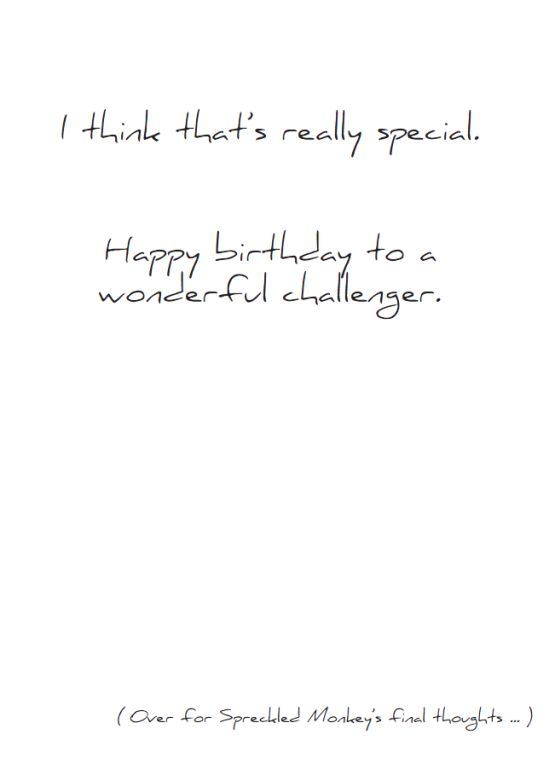 I think that's really special.
Happy birthday to a
wonderful challenger.
( Over for Spreckled Monkey's final thoughts ... )